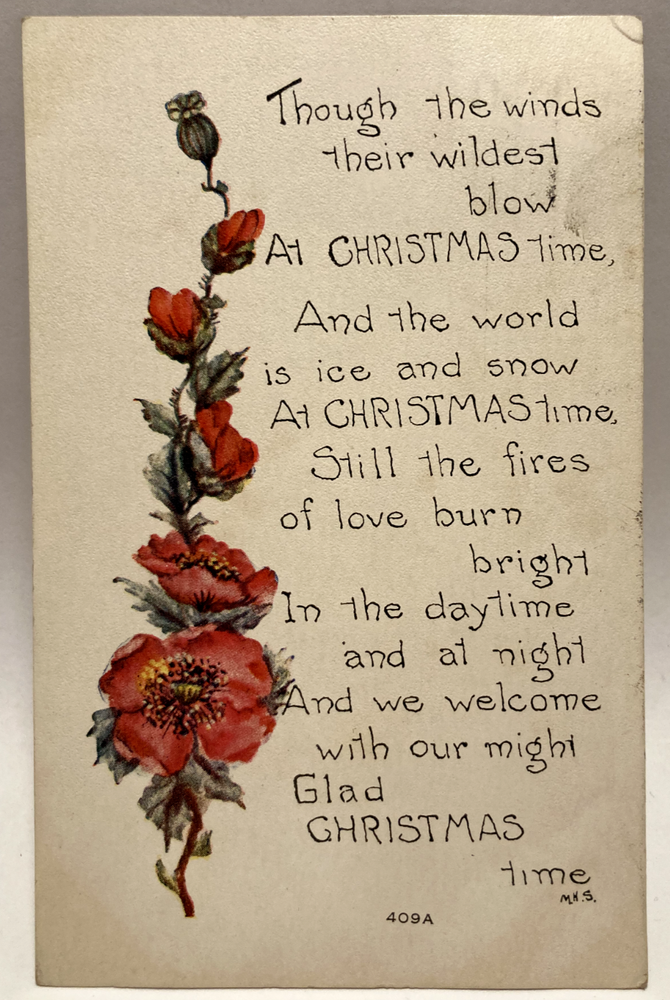 Though the winds
their wildest
blow
At CHRISTMAS time,
And the world
is ice and snow
At CHRISTMAS time,
Still the fires
of love burn
bright
In the daytime
and at night
And we welcome
with our might
Glad
CHRISTMAS
time
M.H.S.
409A